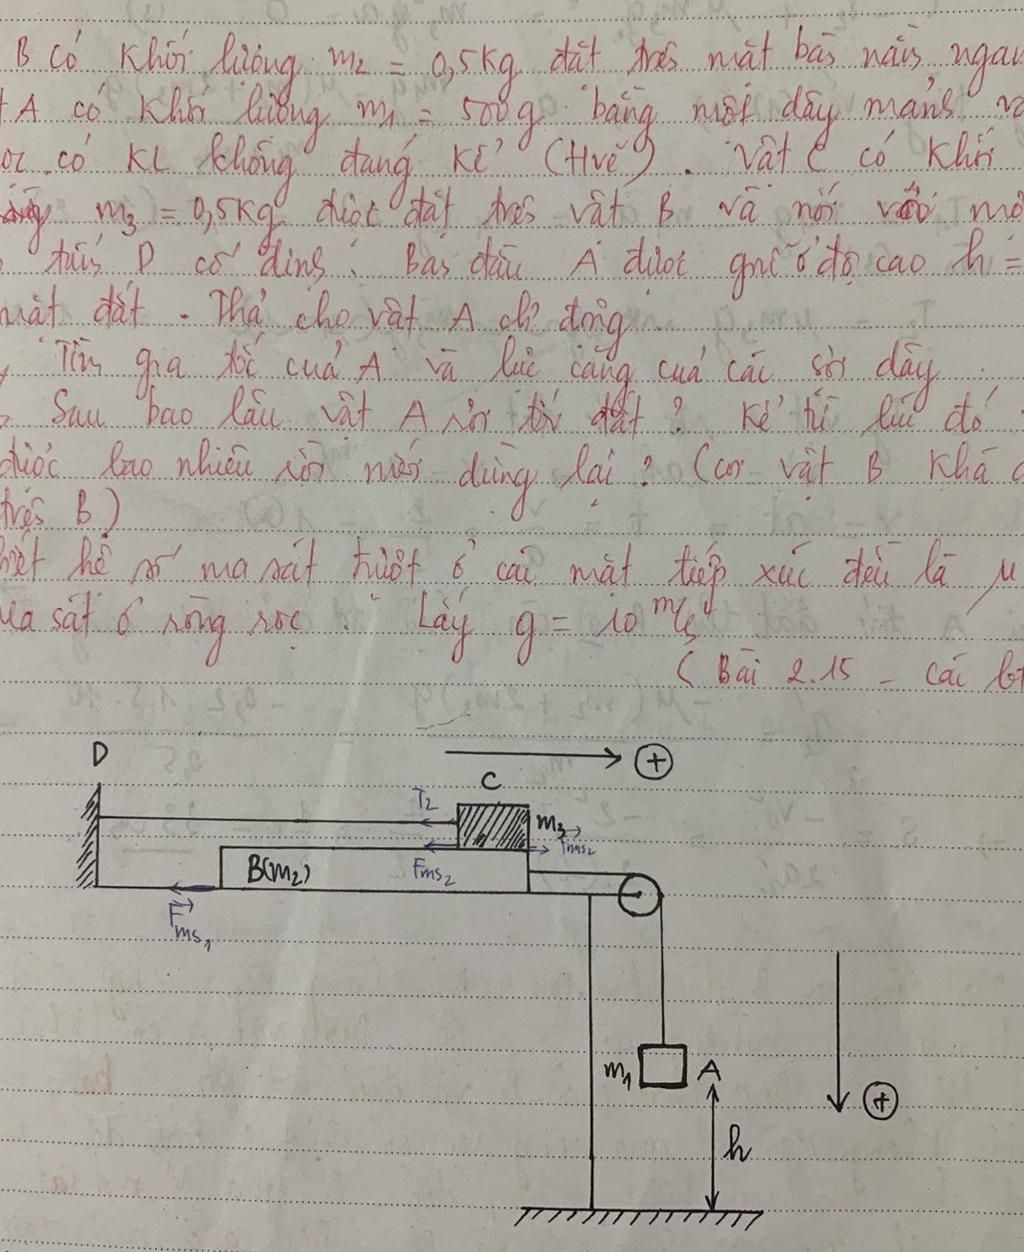 B có khối lượng m₂ = 0,5kg đặt trên mặt bàn nằm ngan
A có khối lượng m₁ = 500g bằng một dây mảnh
có KL không đáng kể (Hvẽ). Vật C có khối
m₃ = 0,5kg được đặt trên vật B và nối với
D cố định. Ban đầu A được giữ ở độ cao h =
mặt đất. Thả cho vật A ch° động
Tìm gia tốc của A và lực căng của các sợi dây
Sau bao lâu vật A rơi tới đất? Kể từ lúc đó
được bao nhiêu rồi mới dừng lại? (coi vật B khá d
trên B)
hệ số ma sát trượt ở các mặt tiếp xúc đều là μ
ma sát ở ròng rọc. Lấy g = 10 m/s²
(Bài 2.15 - các bt
D
⊕
C
T₂
m₃
Fms₂
Fms₂
B(m₂)
Fms₁
m₁ A
h
⊕